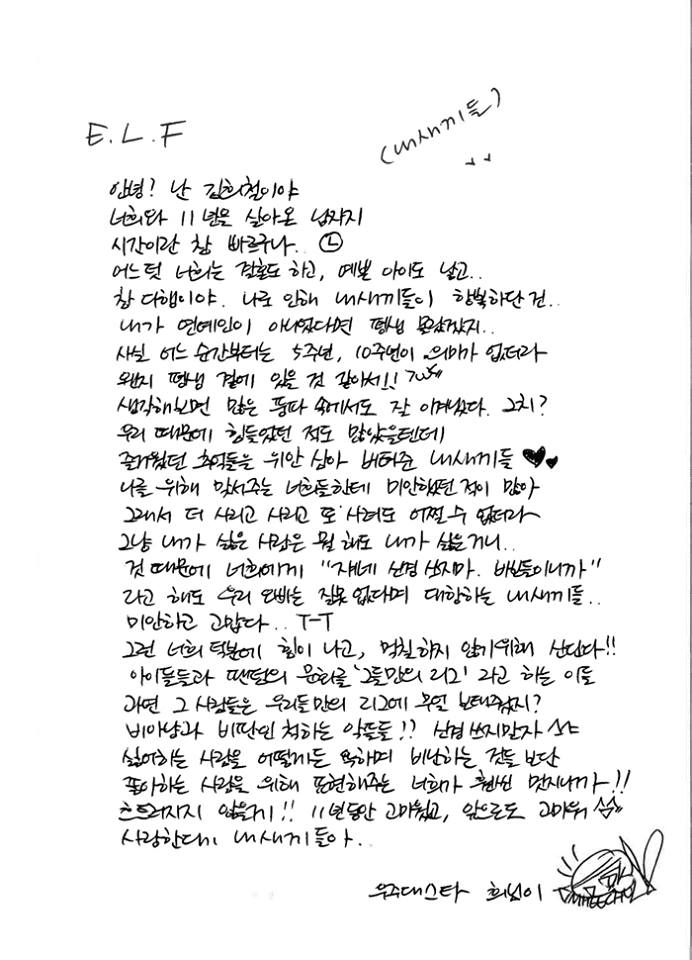 E.L.F
(내새끼들)
안녕? 난 김희철이야
너희와 11년을 살아온 남자지
시간이란 참 빠르구나..
어느덧 너희는 결혼도 하고, 예쁜 아이도 낳고..
참 다행이야. 나로 인해 내새끼들이 행복하단 건..
내가 연예인이 아니었다면 평생 몰랐겠지..
사실 어느 순간부터는 5주년, 10주년이 의미가 없더라
왠지 평생 곁에 있을 것 같아서!!
생각해보면 많은 풍파 속에서도 잘 이겨냈다. 그치?
우리 때문에 힘들었던 적도 많았을텐데
즐거웠던 추억들을 위안 삼아 버텨준 내새끼들 ♥♥
나를 위해 맞서주는 너희들한테 미안했던 적이 많아
그래서 더 사리고 사리고 또 사려도 어쩔 수 없더라
그냥 내가 싫은 사람은 뭘 해도 내가 싫은거니..
것 때문에 너희에게 "쟤네 신경 쓰지마. 바보들이니까"
라고 해도 우리 오빠는 잘못 없다며 대항하는 내새끼들..
미안하고 고맙다.. T-T
그런 너희 덕분에 힘이 나고, 멈칫하지 않기위해 산단다!!
아이돌들과 팬덤의 문화를 '그들만의 리그' 라고 하는 이들
과연 그 사람들은 우리들만의 리그에 무얼 보태주었지?
비아냥과 비판인 척하는 악플들!? 신경 쓰지말자
싫어하는 사람을 어떻게든 욕하며 비난하는 것들 보단
좋아하는 사람을 위해 표현해주는 너희가 훨씬 멋지니까!!
흐트러지지 않을게!! 11년동안 고마웠고, 앞으로도 고마워
사랑한다 내새끼들아..
우주대스타 희님이